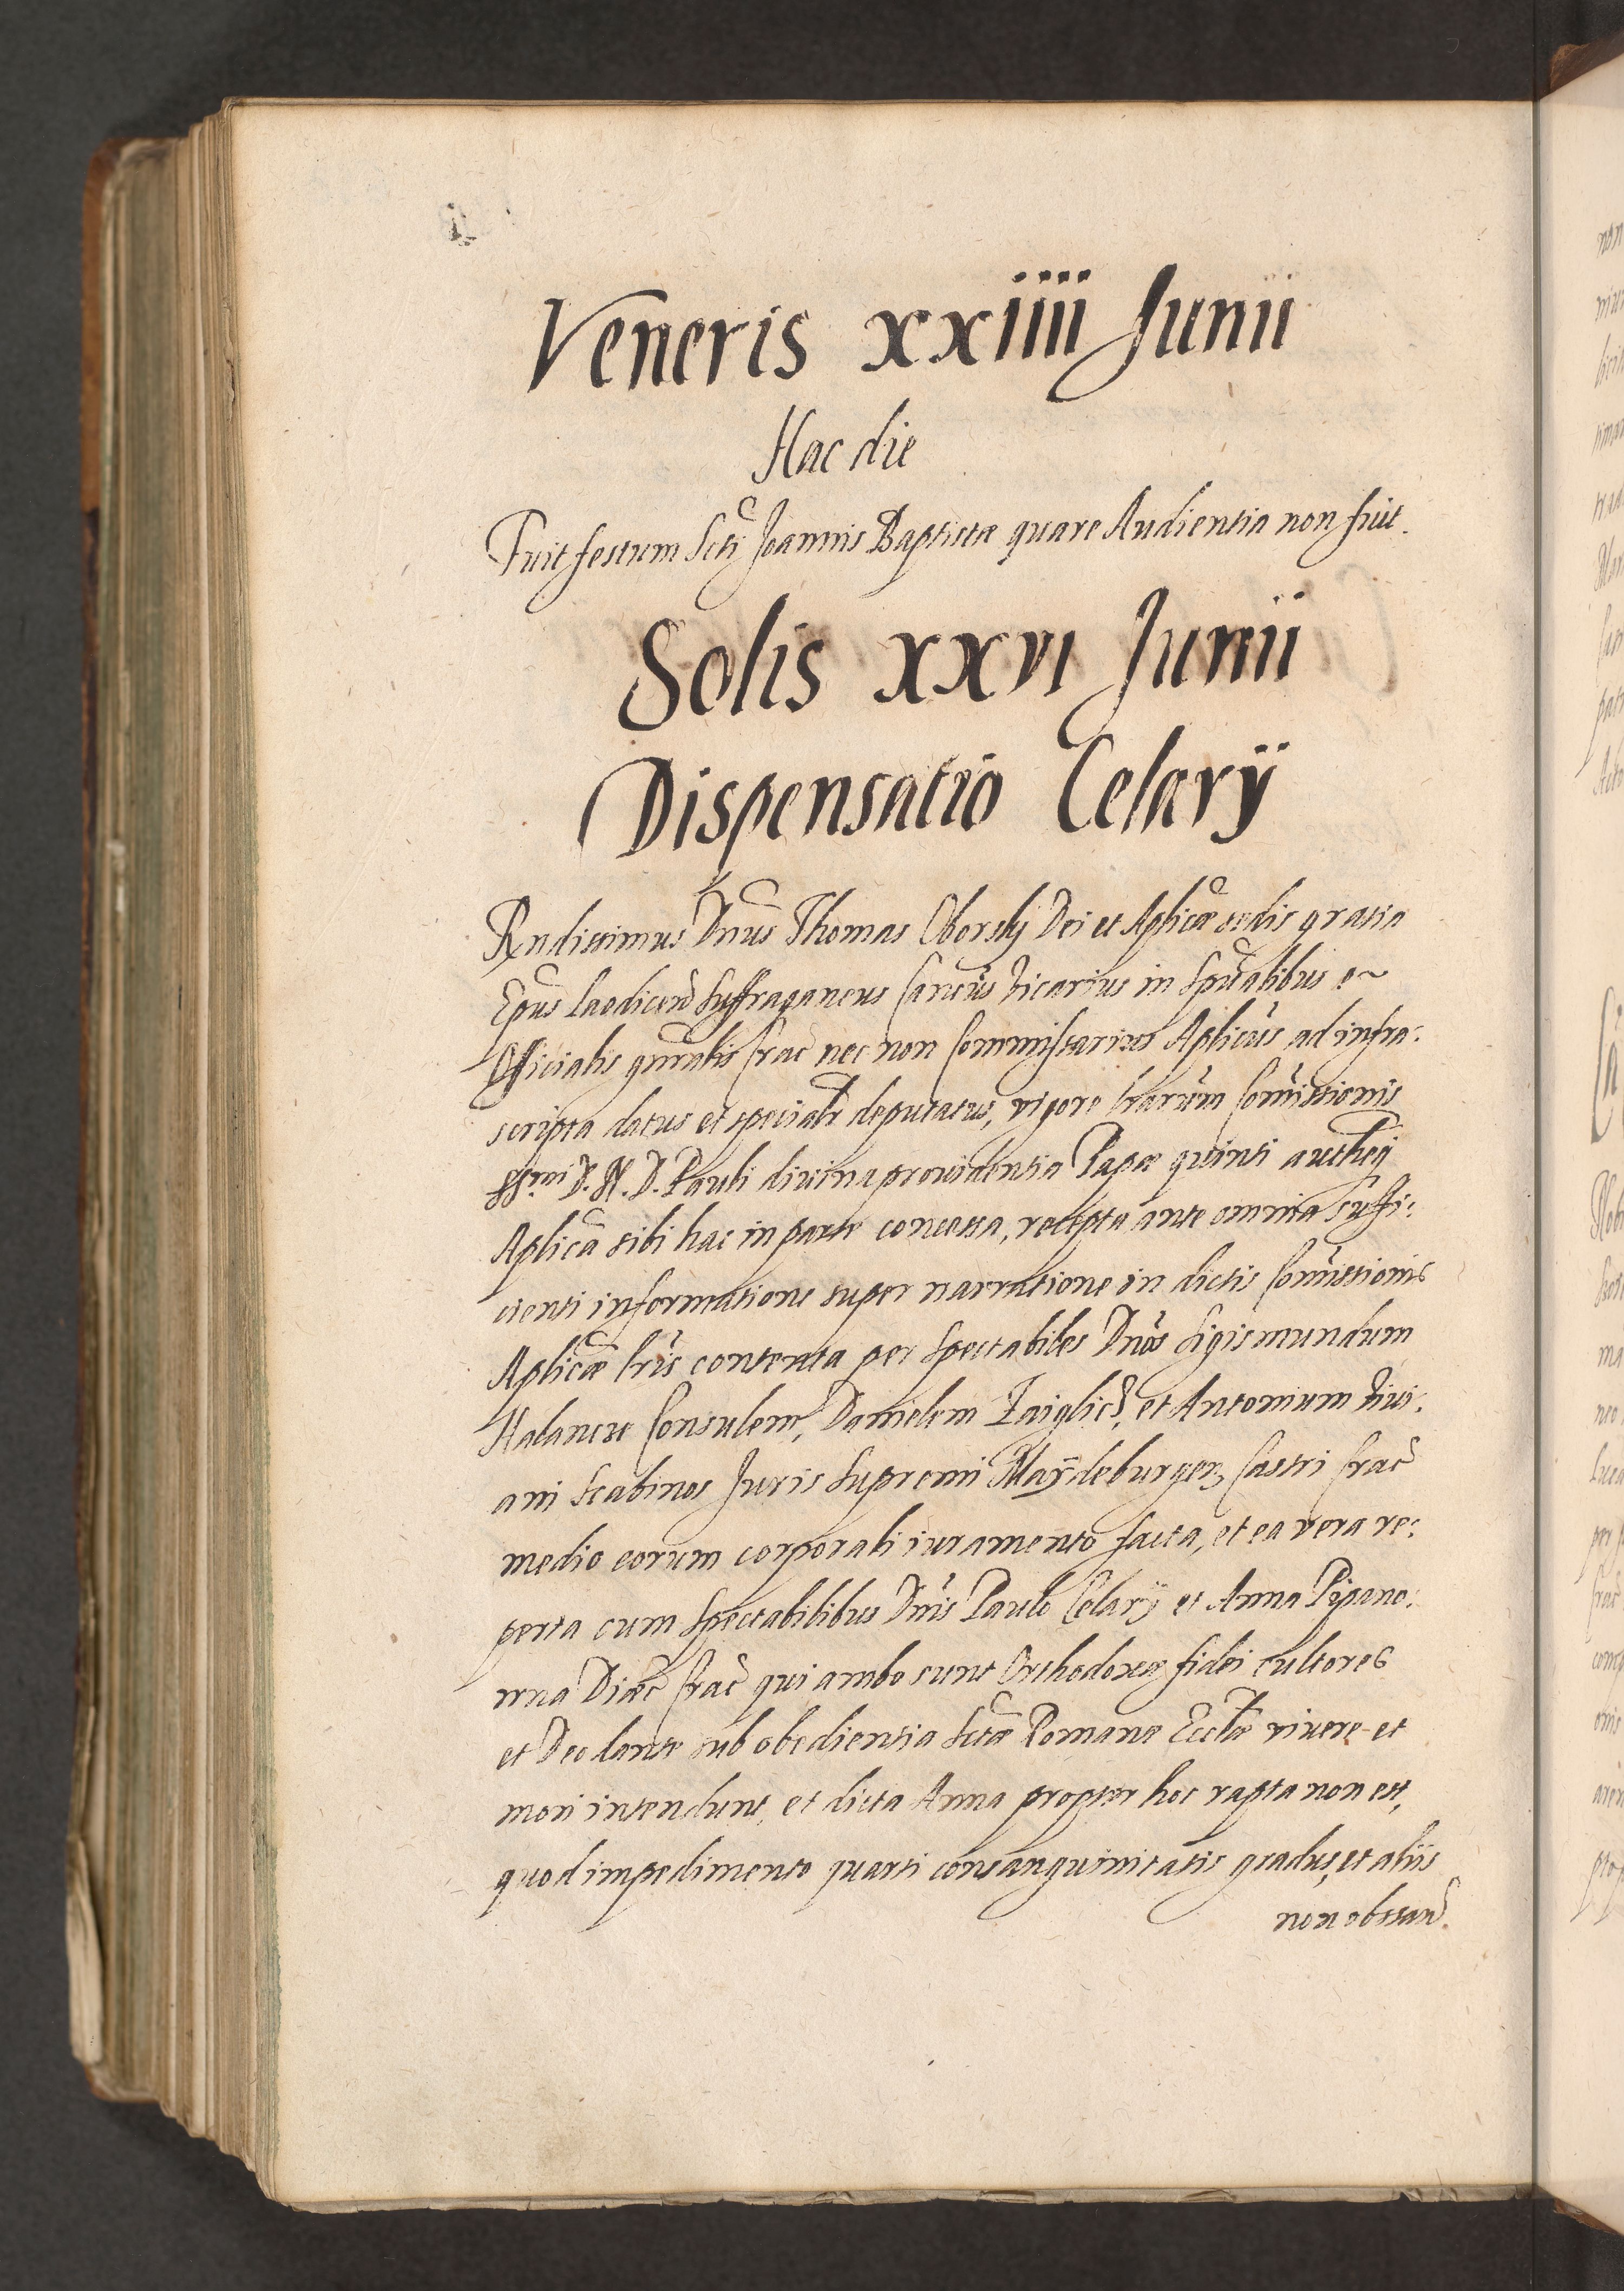 Veneris xxiiii Junii
Hac die
Fuit festum Scti Joannis Baptistæ quare Audientia non fuit.
Solis xxvi Junii
Dispensatio Celarÿ
Rndissimus Dnus Thomas Oborsky Dei et Aplicæ sedis gratia
Epus Laodicen Suffraganeus Cancus Vicarius in Spualibus et
Officialis gnralis Crac nec non Commissarius Aplicus ad infra:
scripta datus et specialr deputatus, vigore lrarum Comissionis
SSmi D. N. D. Pauli divina providentia Papæ quinti autheq
Aplica sibi hac in parte concessa, recepta ante omnia suffi:
cienti informatione super narratione in dictis Comissionis
Aplicæ lris contenta per Spectabiles Dnos Sigismundum
Halancze Consulem, Danielem Faiglicz, et Antonium Vivi:
ani Scabinos Juris Supremi Maydeburgen Castri Crac
medio eorum corporali iuramento facta, et ea vera re:
perta cum Spectabilibus Dnis Paulo Celarÿ et Anna Pipano:
wna Diæc Crac qui ambo sunt Orthodoxæ fidei cultores
et Deo dante sub obedientia Sctæ Romanæ Ecclæ vivere et
mori intendunt, et dicta Anna propter hoc rapta non est,
quod impedimento quarti consanguinitatis gradus, et aliis
non obstan